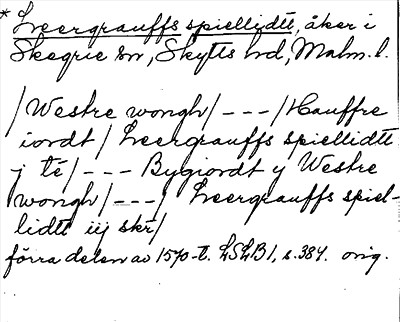 * Leergrauffs spiellidtt, åker i
Skegrie sn, Skytts hd, Malm. l.
/Westre wongh/ - - - /Hauffre
iordt/ Leergrauffs spiellidtt
j té/ - - - Bygiordt y Westre
wongh/ - - -/ Leergrauffs spiel-
lidtt iij skr/
förra delen av 1570-t. LSLB1, s. 384. orig.